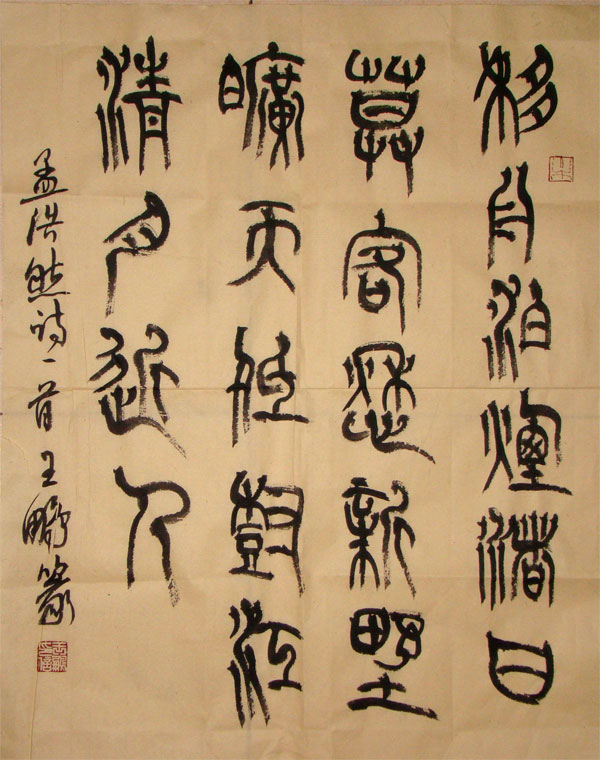 移舟泊煙渚日
暮客愁新野
曠天低樹江
清月近人
孟浩然诗一首王鹏篆